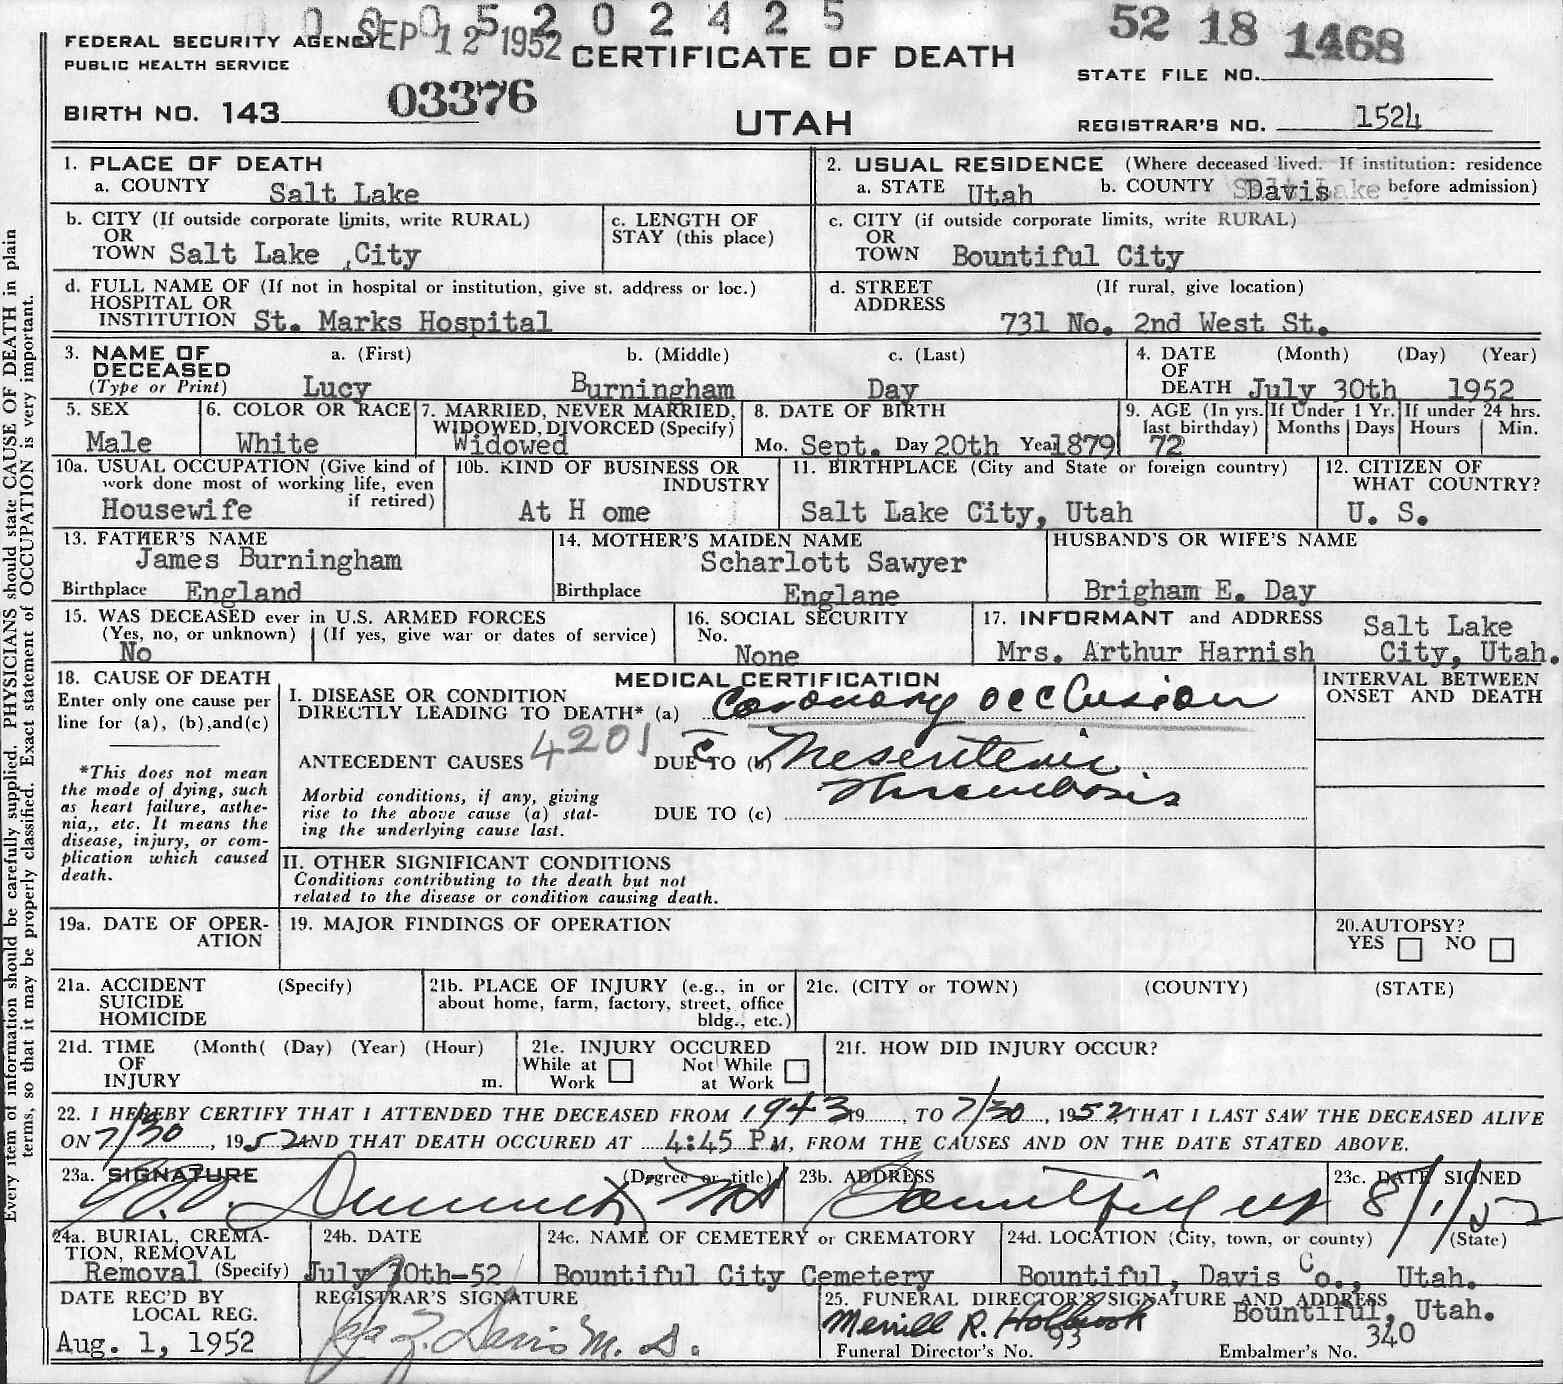 0 0 0 5 2 0 2 4 2 5
SEP 12 1952
52 18 1468
FEDERAL SECURITY AGENCY
PUBLIC HEALTH SERVICE
CERTIFICATE OF DEATH
STATE FILE NO.
BIRTH NO. 143 03376
UTAH
REGISTRAR'S NO. 1524
Every item of information should be carefully supplied. PHYSICIANS should state CAUSE OF DEATH in plain
terms, so that it may be properly classified. Exact statement of OCCUPATION is very important.
1. PLACE OF DEATH
a. COUNTY Salt Lake
2. USUAL RESIDENCE (Where deceased lived. If institution: residence
a. STATE Utah b. COUNTY Salt Lake Davis before admission)
b. CITY (If outside corporate limits, write RURAL)
OR
TOWN Salt Lake ,City
c. LENGTH OF
STAY (this place)
c. CITY (if outside corporate limits, write RURAL)
OR
TOWN Bountiful City
d. FULL NAME OF (If not in hospital or institution, give st. address or loc.)
HOSPITAL OR
INSTITUTION St. Marks Hospital
d. STREET (If rural, give location)
ADDRESS
731 No. 2nd West St.
3. NAME OF a. (First) b. (Middle) c. (Last)
DECEASED
(Type or Print) Lucy Burningham Day
4. DATE (Month) (Day) (Year)
OF
DEATH July 30th 1952
5. SEX
Male
6. COLOR OR RACE
White
7. MARRIED, NEVER MARRIED,
WIDOWED, DIVORCED (Specify)
Widowed
8. DATE OF BIRTH
Mo. Sept. Day 20th Year 1879
9. AGE (In yrs.
last birthday)
72
If Under 1 Yr.
Months Days
If under 24 hrs.
Hours Min.
10a. USUAL OCCUPATION (Give kind of
work done most of working life, even
if retired)
Housewife
10b. KIND OF BUSINESS OR
INDUSTRY
At H ome
11. BIRTHPLACE (City and State or foreign country)
Salt Lake City, Utah
12. CITIZEN OF
WHAT COUNTRY?
U. S.
13. FATHER'S NAME
James Burningham
Birthplace England
14. MOTHER'S MAIDEN NAME
Scharlott Sawyer
Birthplace Englane
HUSBAND'S OR WIFE'S NAME
Brigham E. Day
15. WAS DECEASED ever in U.S. ARMED FORCES
(Yes, no, or unknown) (If yes, give war or dates of service)
No
16. SOCIAL SECURITY
No.
None
17. INFORMANT and ADDRESS Salt Lake
Mrs. Arthur Harnish City, Utah.
18. CAUSE OF DEATH
Enter only one cause per
line for (a), (b), and (c)
*This does not mean
the mode of dying, such
as heart failure, asthe-
nia,, etc. It means the
disease, injury, or com-
plication which caused
death.
MEDICAL CERTIFICATION
I. DISEASE OR CONDITION
DIRECTLY LEADING TO DEATH* (a) Coronary occlusion
ANTECEDENT CAUSES 4201 DUE TO (b) c̄ Mesenteric
Thrombosis
Morbid conditions, if any, giving
rise to the above cause (a) stat-
ing the underlying cause last.
DUE TO (c)
INTERVAL BETWEEN
ONSET AND DEATH
II. OTHER SIGNIFICANT CONDITIONS
Conditions contributing to the death but not
related to the disease or condition causing death.
19a. DATE OF OPER-
ATION
19. MAJOR FINDINGS OF OPERATION
20. AUTOPSY?
YES NO
21a. ACCIDENT (Specify)
SUICIDE
HOMICIDE
21b. PLACE OF INJURY (e.g., in or
about home, farm, factory, street, office
bldg., etc.)
21c. (CITY or TOWN) (COUNTY) (STATE)
21d. TIME (Month( (Day) (Year) (Hour)
OF
INJURY m.
21e. INJURY OCCURED
While at Not While
Work at Work
21f. HOW DID INJURY OCCUR?
22. I HEREBY CERTIFY THAT I ATTENDED THE DECEASED FROM 1943 19....., TO 7/30, 1952, THAT I LAST SAW THE DECEASED ALIVE
ON 7/30, 1952 AND THAT DEATH OCCURED AT 4:45 P.M, FROM THE CAUSES AND ON THE DATE STATED ABOVE.
23a. SIGNATURE (Degree or title)
MD
23b. ADDRESS
Bountiful
23c. DATE SIGNED
8/1/52
24a. BURIAL, CREMA-
TION, REMOVAL
Removal (Specify)
24b. DATE
July 30th-52
24c. NAME OF CEMETERY or CREMATORY
Bountiful City Cemetery
24d. LOCATION (City, town, or county) (State)
Bountiful, Davis Co., Utah.
DATE REC'D BY
LOCAL REG.
Aug. 1, 1952
REGISTRAR'S SIGNATURE
M. D.
25. FUNERAL DIRECTOR'S SIGNATURE AND ADDRESS
Merrill R. Holbrook Bountiful, Utah.
Funeral Director's No. 93 Embalmer's No. 340